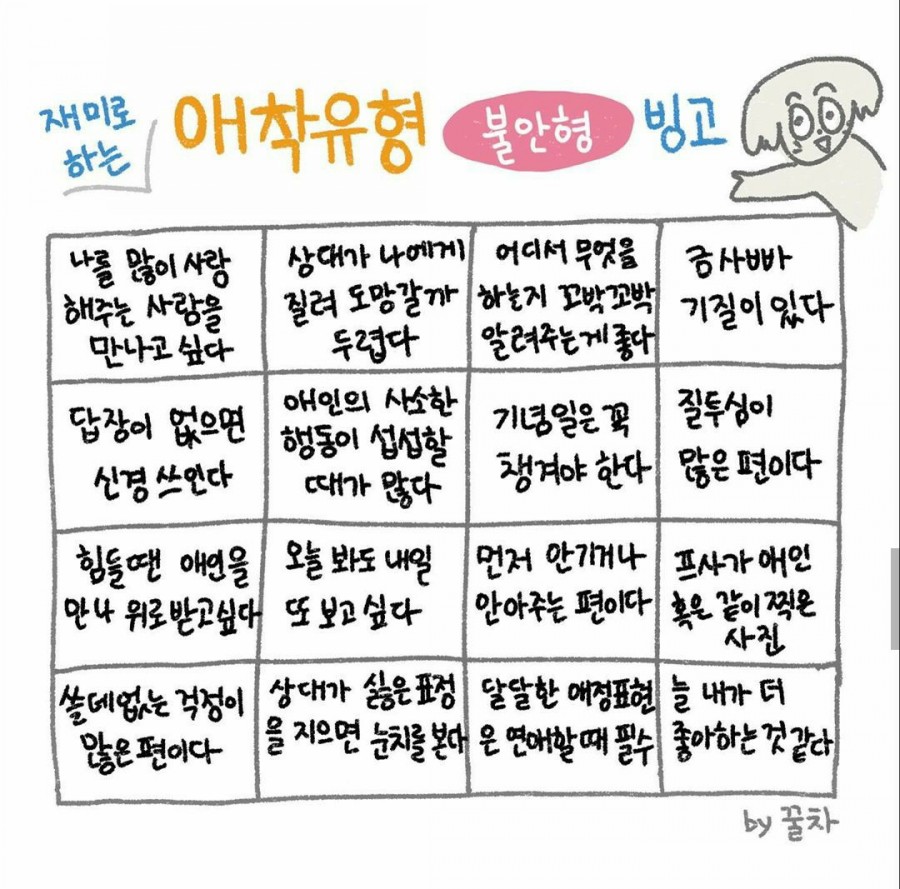 재미로
하는
애착유형 불안형 빙고
나를 많이 사랑
해주는 사람을
만나고 싶다
상대가 나에게
질려 도망갈까
두렵다
어디서 무엇을
하는지 꼬박꼬박
알려주는게 좋다
금사빠
기질이 있다
답장이 없으면
신경 쓰인다
애인의 사소한
행동이 섭섭할
때가 많다
기념일은 꼭
챙겨야 한다
질투심이
많은 편이다
힘들땐 애인을
만나 위로받고싶다
오늘 봐도 내일
또 보고 싶다
먼저 안기거나
안아주는 편이다
프사가 애인
혹은 같이 찍은
사진
쓸데없는 걱정이
많은 편이다
상대가 싫은 표정
을 지으면 눈치를 본다
달달한 애정표현
은 연애할때 필수
늘 내가 더
좋아하는것 같다
by 꿀차